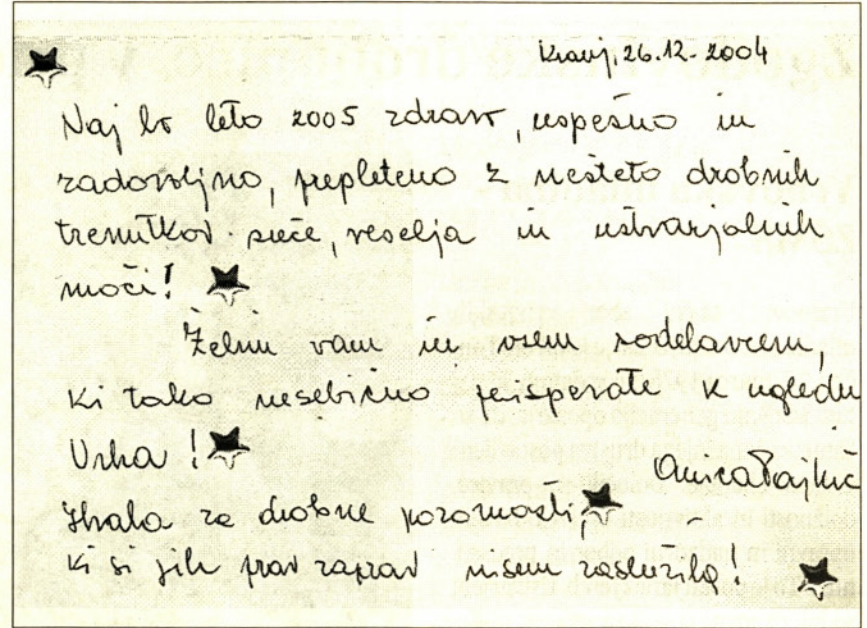 Kranj, 26.12.2004
Naj bo leto 2005 zdravo, uspešno in
zadovoljno, prepleteno z nešteto drobnih
trenutkov sreče, veselja in ustvarjalnih
moči!
Želim vam in vsem sodelavcem,
ki tako nesebično prispevate k ugledu
Vrha!
Anica Pajhič
Hvala za drobne pozornosti,
ki si jih prav zaprav nisem zaslužila!